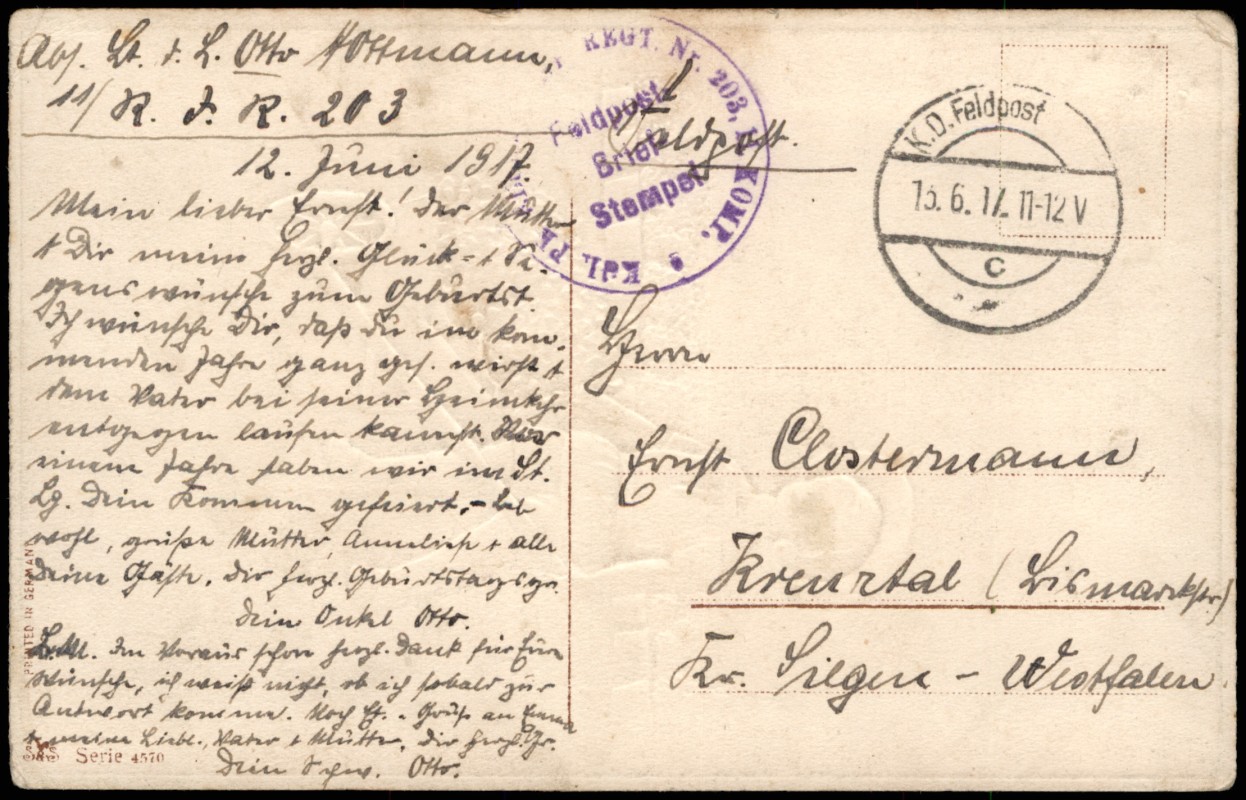 Abs. Lt. d. L. Otto Hottmann,
11/ R. J. R. 203
12. Juni 1917.
Mein lieber Ernst! Der Mutter
+ Dir meine herzl. Glück= + Se-
genswünsche zum Geburtst.
Ich wünsche Dir, daß Du im kom-
menden Jahre ganz ges. wirst +
dem Vater bei seiner Heimkehr
entgegen laufen kannst. Vor
einem Jahre haben wir im St.
Lg. Dein Kommen gefeiert. - Leb
wohl, grüße Mutter, Anneliese + alle
Deine Gäste. Dir herzl. Geburtstagsgr.
Dein Onkel Otto.
L. M. Im Voraus schon herzl. Dank für Eure
Wünsche, ich weiß nicht, ob ich sobald zur
Antwort komme. Noch Grüße an Emma
+ meine Liebl., Vater + Mutter. Dir herzl. Gr.
Dein Schw. Otto.
PRINTED IN GERMANY
S&S Serie 4570
REGT. Nr. 203, KOMP. Kgl.
Feldpost
Brief
Stempel
Feldpost.
K.D. Feldpost
13.6.17. 11-12 V
c
Herrn
Ernst Clostermann,
Kreuztal (Bismarckstr.)
Kr. Siegen - Westfalen.